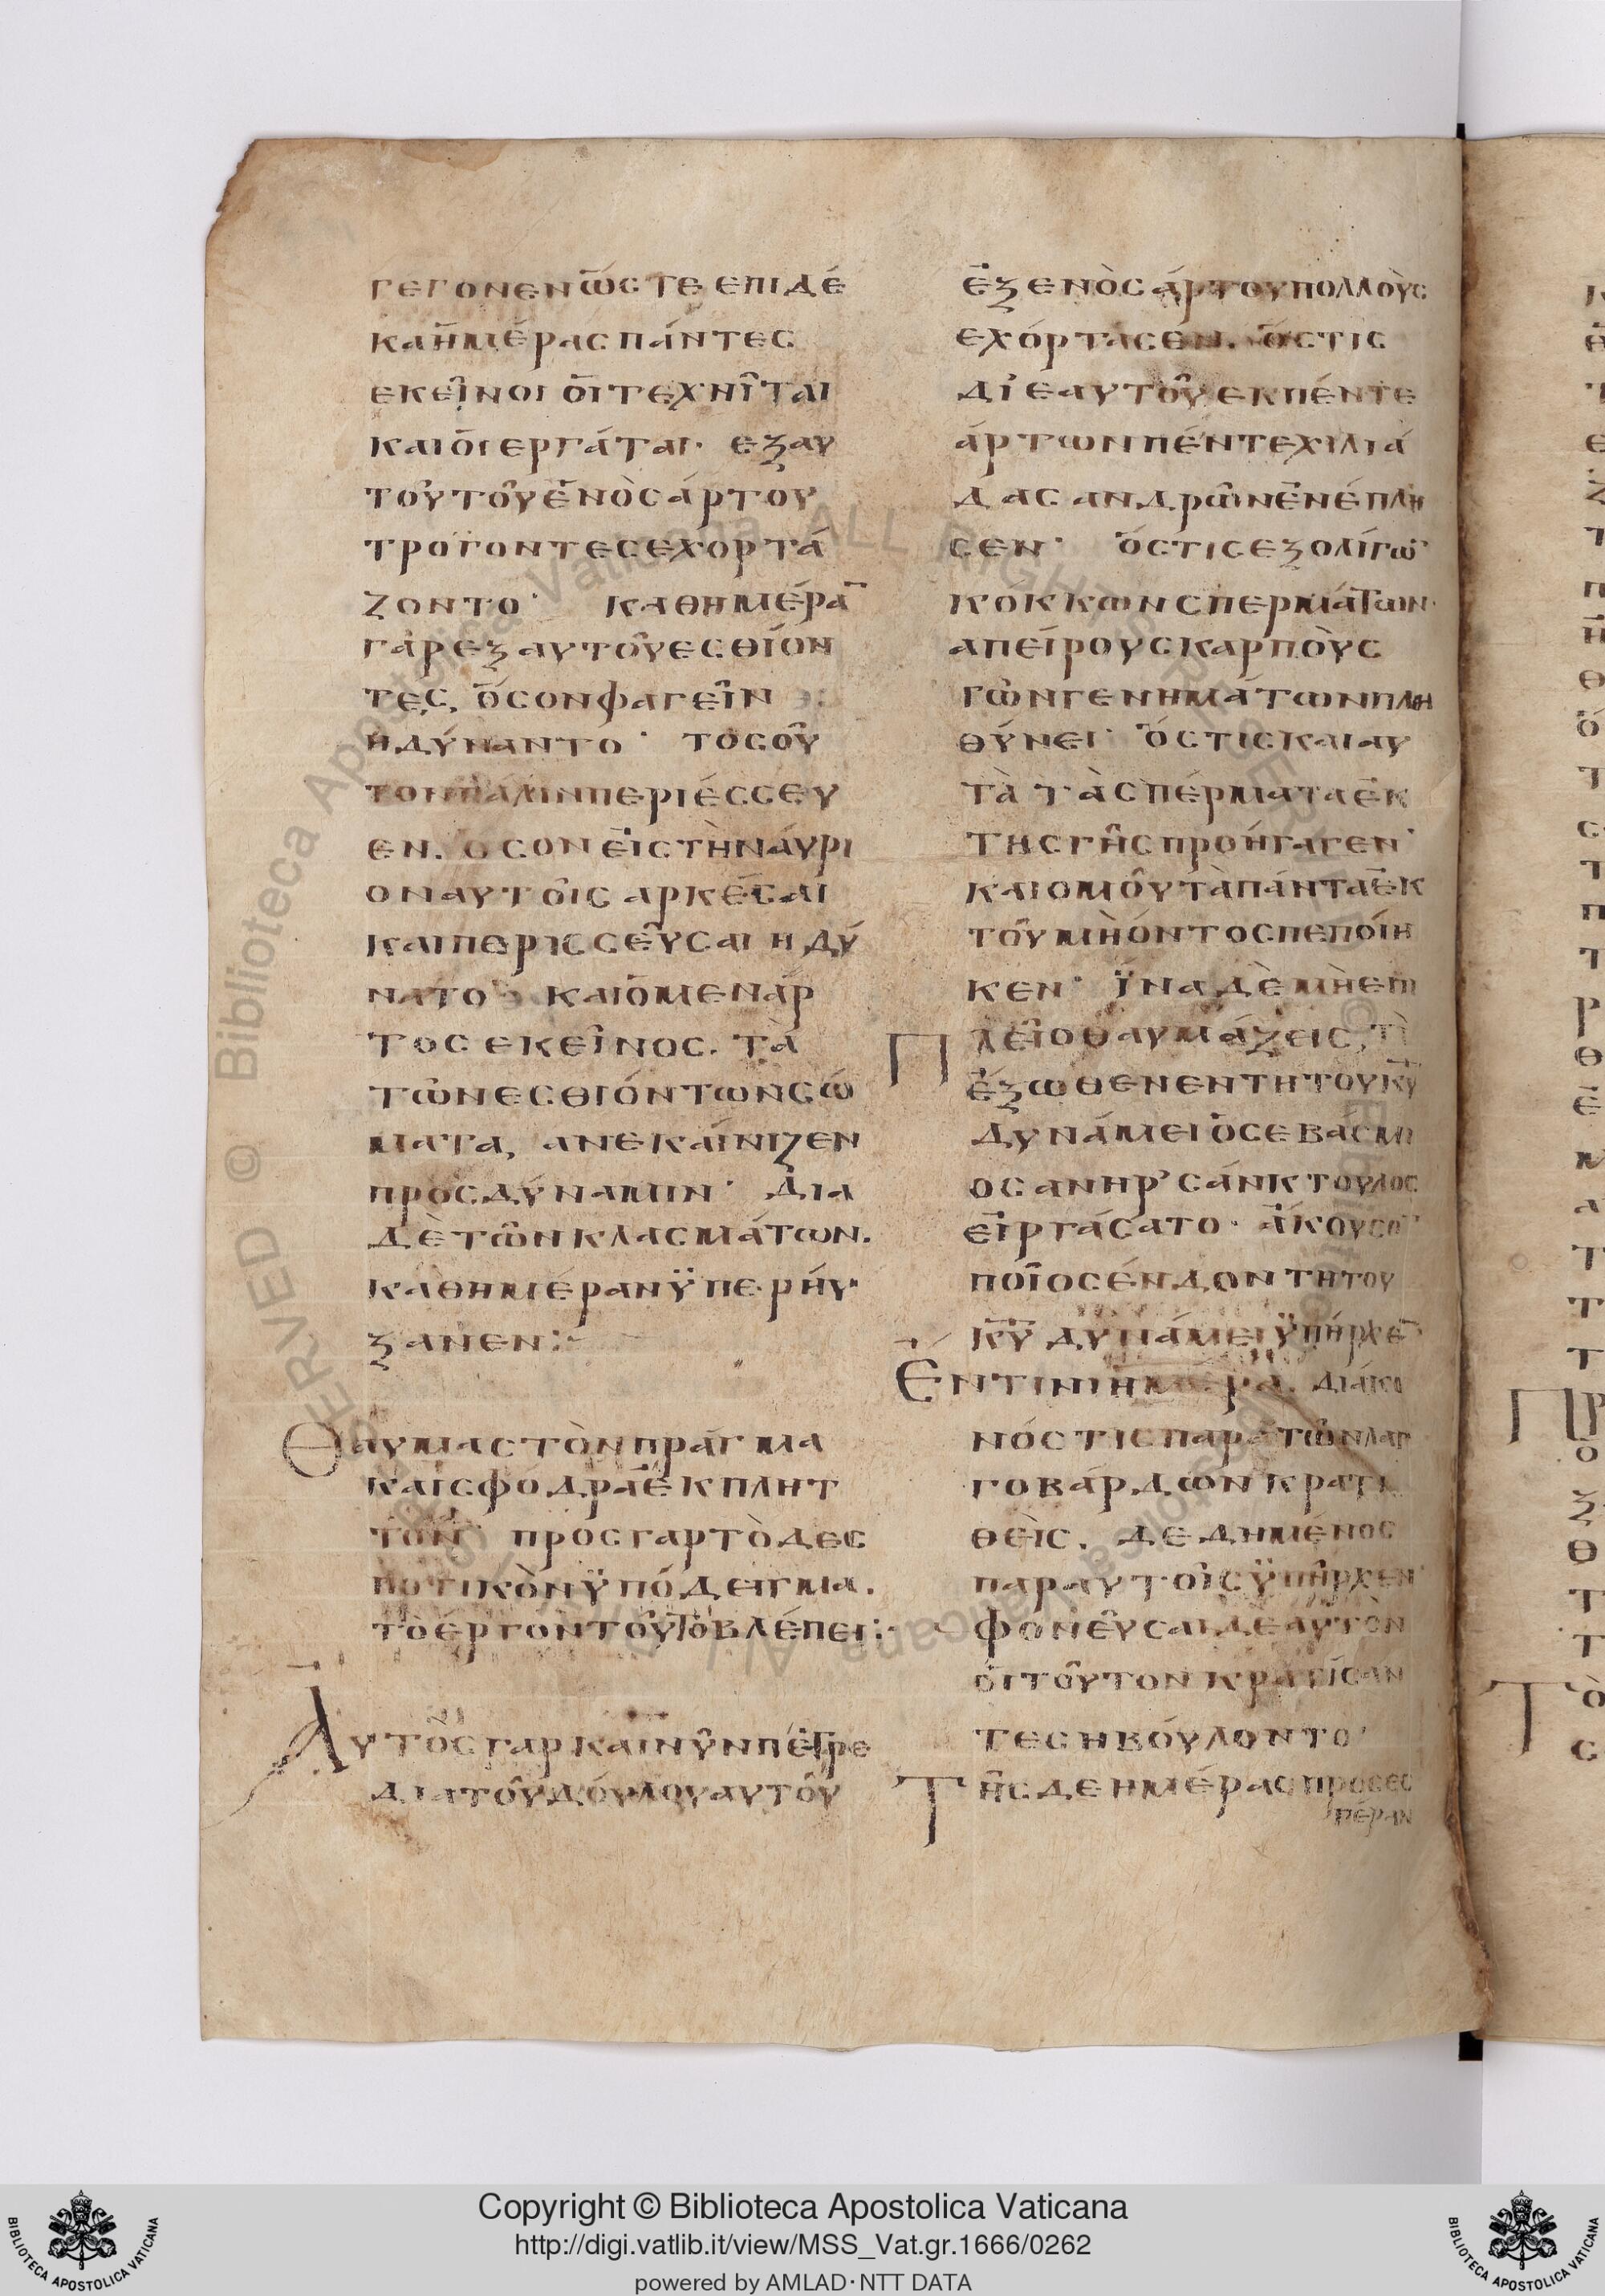 γεγονεν ὥστε επι δέ
κα ἡμέρας πάντες
εκεῖνοι ὁι τεχνῖται
και ὁι εργάται· εξ αυ
τοῦ τοῦ ἑνὸς άρτου
τρόγοντες εχορτά
ζοντο· καθημέρα̅
γὰρ εξ αυτοῦ εσθίον
τες, ὅσον φαγεῖν
ηδύναντο· τοσοῦ
τον πάλιν περιέσσευ
εν. ὅσον εις τὴν άυρι
ον αυτοῖς αρκέσαι
και περισσεῦσαι ηδύ
νατο· και ὁ μεν άρ
τος εκεῖνος. τὰ
τῶν εσθιόντων σώ
ματα, ανεκαίνιζεν
πρὸς δύναμιν· Δια
δὲ τῶν κλασμάτων.
καθημέραν ϋπερήυ
ξανεν:-
Θαυμαστὸν πράγμα
και σφόδρα έκπλητ
τον· προς γαρ τὸ δεσ
ποτικὸν ϋπόδειγμα.
τὸ έργον τοῦτο βλέπει:-
Αυτὸς γαρ και νῦν πέτρε
διὰ τοῦ δούλου αυτοῦ
ἐξ ενὸς άρτου πολλοὺς
εχόρτασεν. ὅστις
δι εαυτοῦ εκ πέντε
άρτων πέντε χιλιά
δας ανδρῶν ενέπλη
σεν· ὅστις εξ ολίγω̅
κόκκων σπερμάτων
απείρους καρπὸυς
γῶν γενημάτων πλη
θύνει· ὅστις και αυ
τὰ τὰ σπέρματα εκ
της γῆς προήγαγεν·
και ομοῦ τὰ πάντα εκ
τοῦ μὴ όντος πεποίη
κεν· ϊνα δὲ μὴ επι
Πλεῖο θαυμάζεις, τὶ
έξωθεν εν τη του κ̅υ̅
δυνάμει ὁ σεβάσμι
ος ανηρ σάνκτουλος
ειργάσατο· άκουσο̅
ποῖος ένδον τη του
κ̅υ̅ δυνάμει ϋπήρχε̅
Εν τινι ημέρα. διάκο
νός τις παρα τῶν λαγ
γοβάρδων κρατι
θεὶς. δεδημένος
παρ αυτοῖς ϋπῆρχεν·
φονεῦσαι δε αυτὸν
ὁι τοῦτον κρατίσαν
τες ηβόυλοντο·
Τῆς δε ημέρας προς εσ
πέραν
Copyright © Biblioteca Apostolica Vaticana
http://digi.vatlib.it/view/MSS_Vat.gr.1666/0262
powered by AMLAD·NTT DATA
BIBLIOTECA APOSTOLICA VATICANA
BIBLIOTECA APOSTOLICA VATICANA